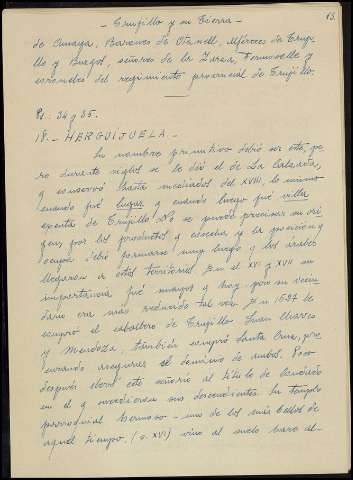 13.
- Trujillo y su Tierra -
de Cumaya, Barones de Otanell, Alféreces de Truji-
llo y Burgos, señores de la Zarza, Fermoselle y
coroneles del regimiento provincial de Trujillo.
Pt. 34 y 35.
18. - HERGUIJUELA -
Su nombre primitivo debió ser este, pe-
ro durante siglos se le dió el de La Calzada,
y conservó hasta mediados del XVIII, lo mismo
cuando fué lugar y cuando luego fué villa
exenta de Trujillo. No se puede precisar su ori-
gen, por los productos y cosecha y la posición q
ocupa debió formarse muy luego q los árabes
llegaron a estos territorios. En el XVI y XVII su
importancia fué mayor q hoy - por su vecin-
dario era más reducido tal vez. En 1627 la
compró el caballero de Trujillo Juan Alvarez
y Mendoza, también compró Santa Cruz, pro-
curando asegurar el dominio de ambos. Poco
después elevó este señorío al título de Condado
en el q sucedieron sus descendientes. Su templo
parroquial hermoso - uno de los más bellos de
aquel tiempo, (s. XVI) vino al suelo hace al-